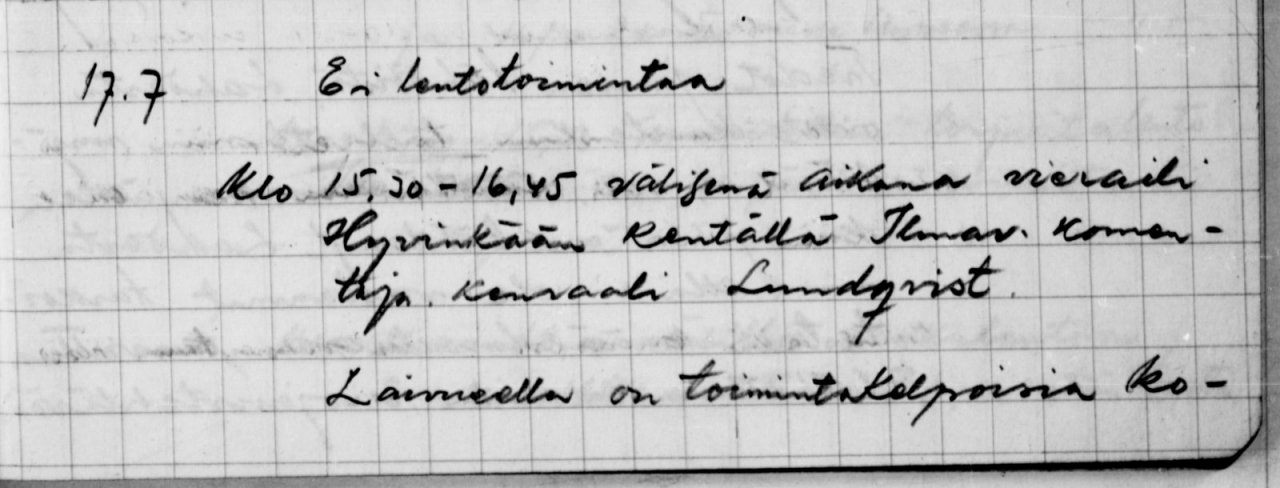 17.7 Ei lentotoimintaa
Klo 15,30-16,45 välisenä aikana vieraili
Hyvinkään kentällä Ilmav. komen-
taja kenraali Lundqvist.
Laivueella on toimintakelpoisia ko-